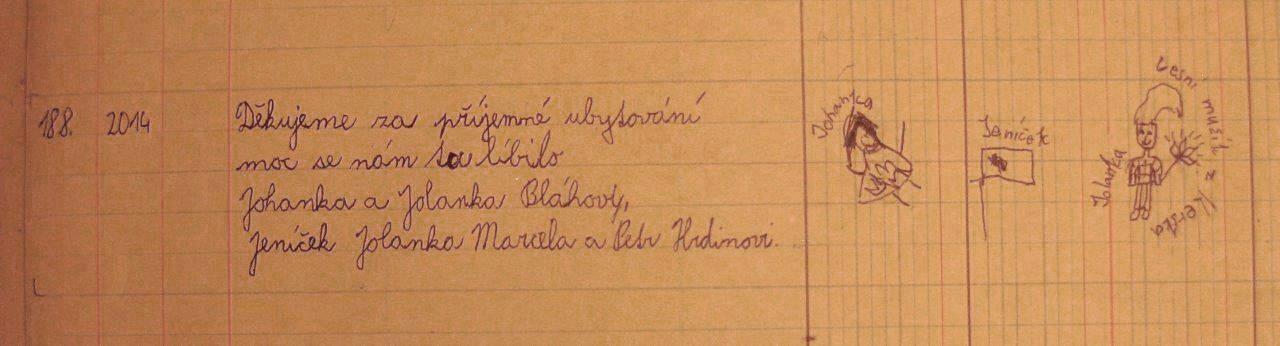 18.8. 2014 Děkujeme za příjemné ubytování
moc se nám ta líbilo
Johanka a Jolanka Bláhovy,
Jeníček Jolanka Marcela a Petr Hrdinovi.
Johanka
Jeníček
Jolanka
Lesní mužík z Kerska